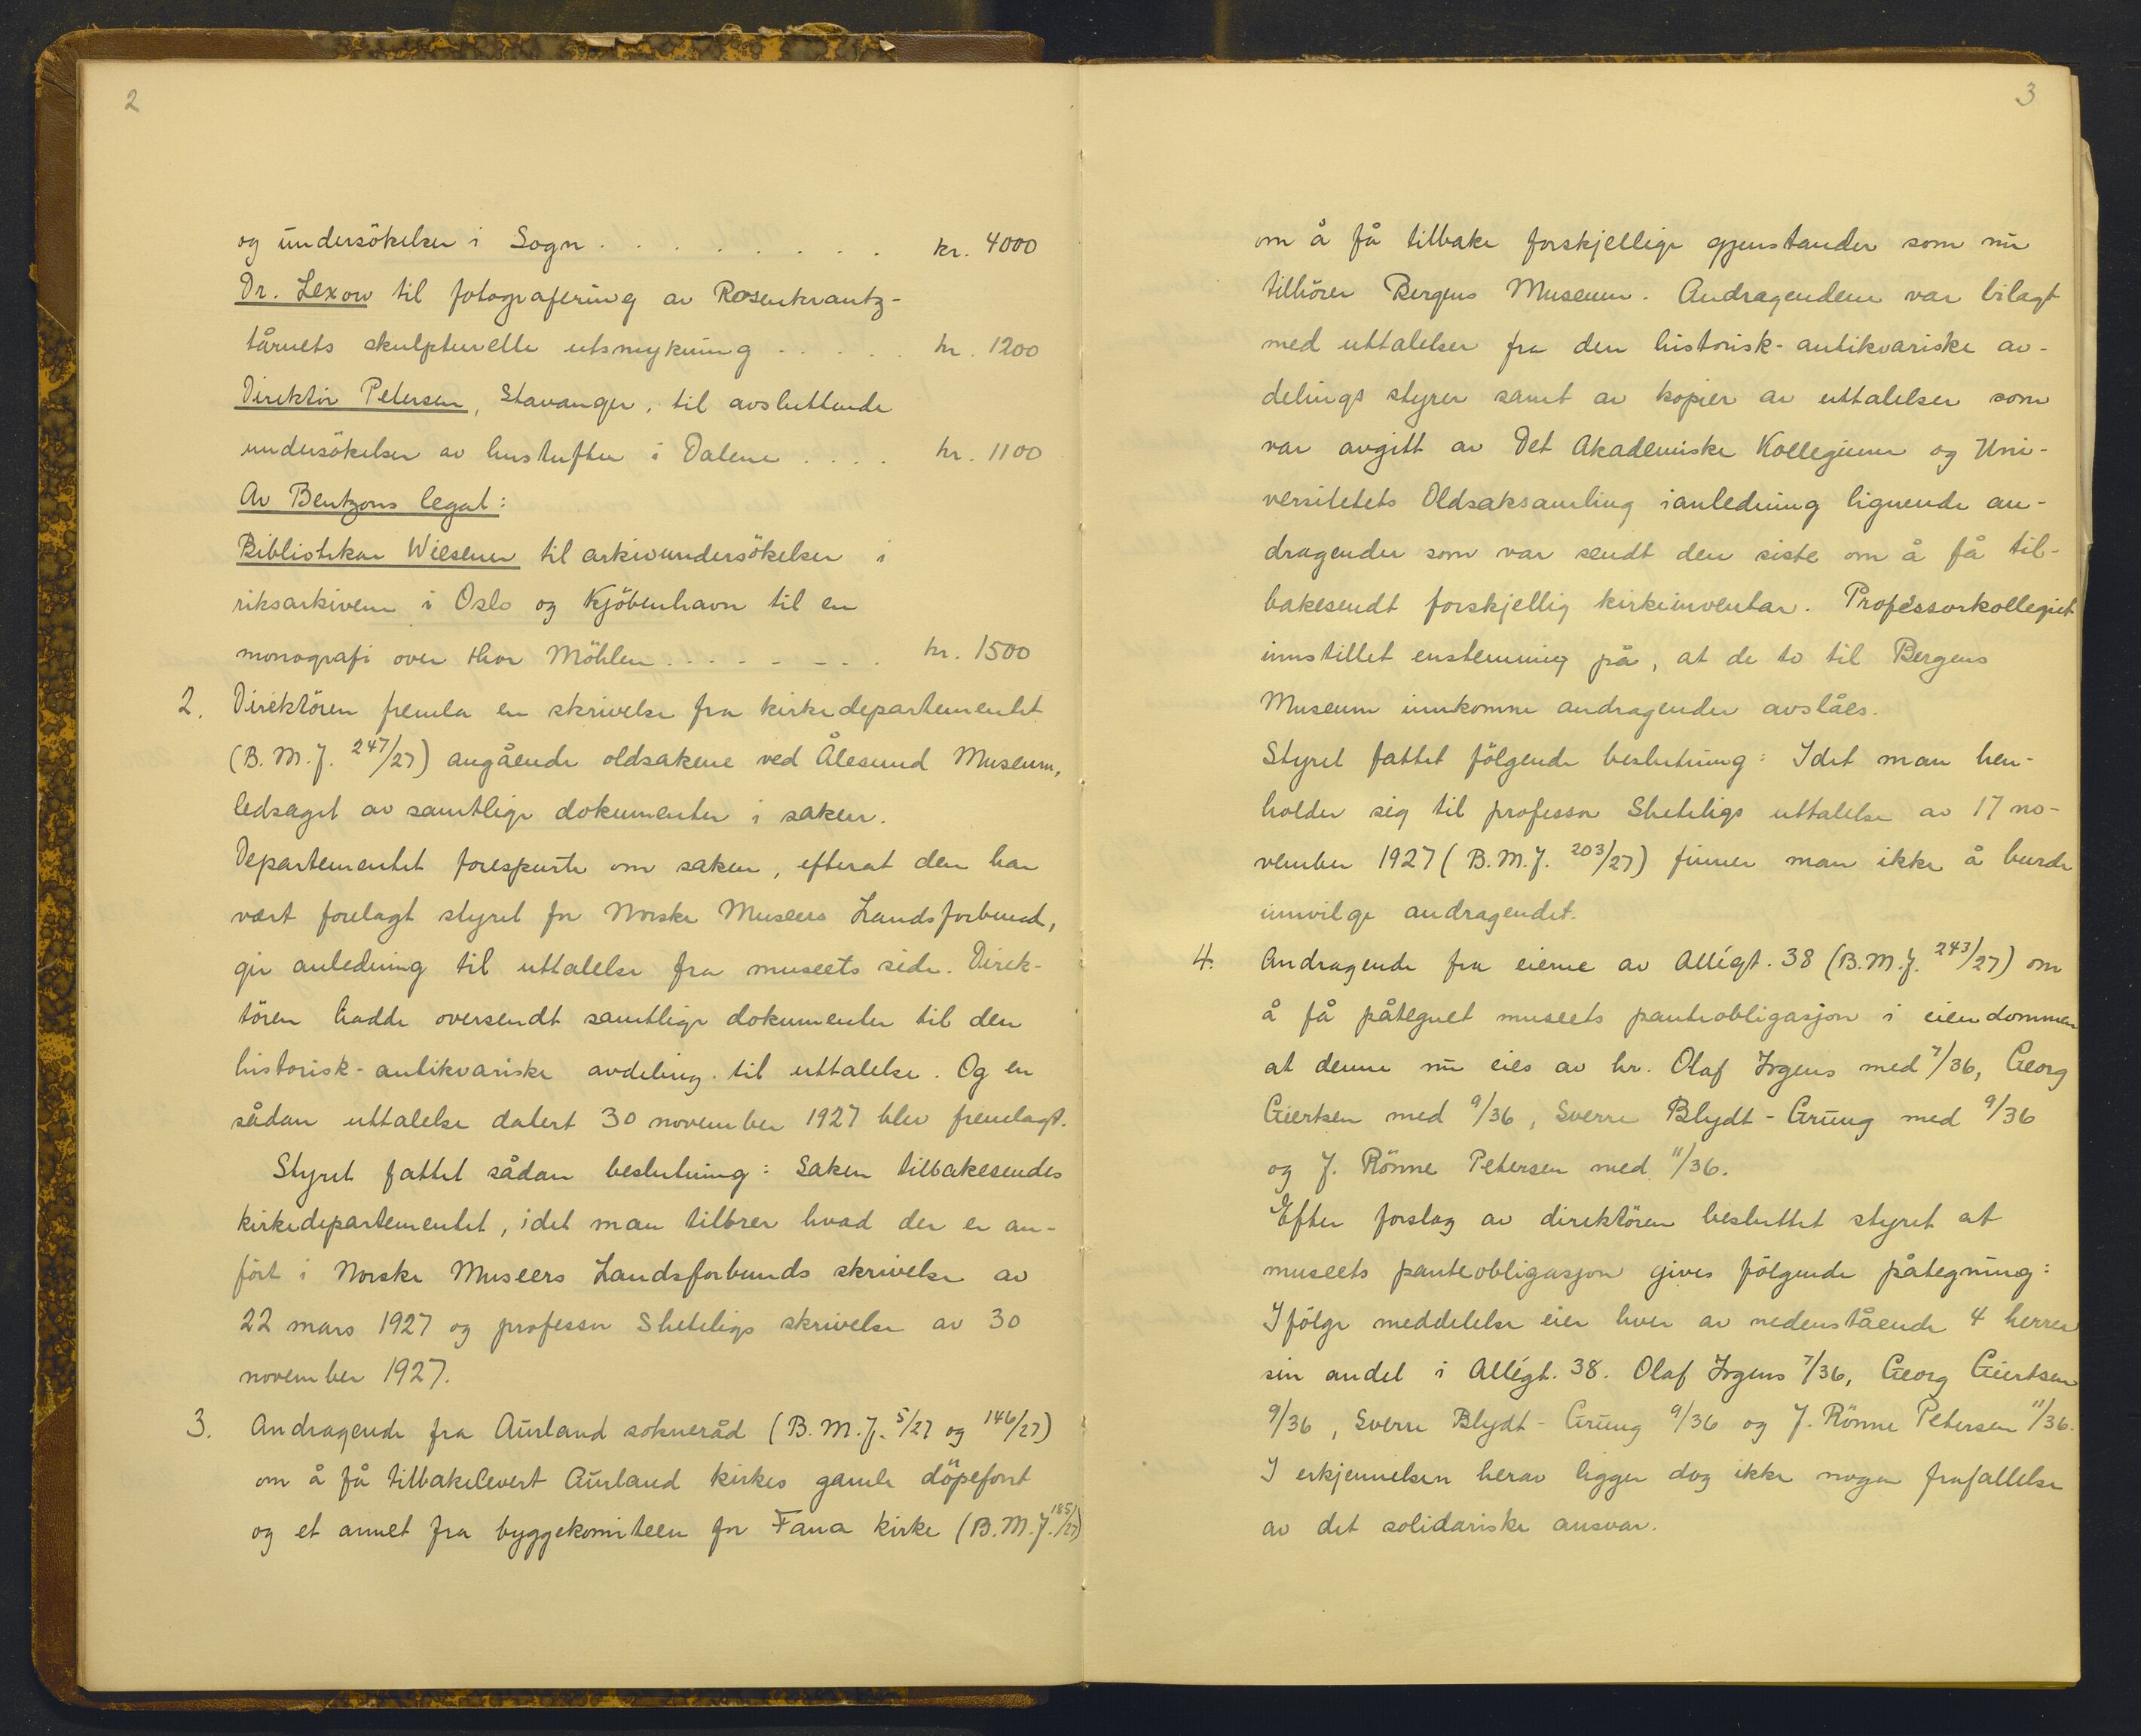 2
og undersökelser i Sogn . . . . . . . . kr. 4000
Dr. Lexow til fotografering av Rosenkrantz-
tårnets skulpturelle utsmykning . . . . . kr. 1200
Direktör Petersen, Stavanger, til avsluttende
undersökelser av hustufter i Dalene . . . . kr. 1100
Av Bentzons legat:
Bibliotekar Wiesener til arkivundersökelser i
riksarkivene i Oslo og Kjöbenhavn til en
monografi over Thor Möhlen . . . . . . . kr. 1500
2. Direktören fremla en skrivelse fra kirkedepartementet
(B.M.J. 247/27) angående oldsakene ved Ålesund Museum,
ledsaget av samtlige dokumenter i saken.
Departementet forespurte om saken, efterat den har
vært forelagt styret for Norske Museers Landsforbund,
gir anledning til uttalelse fra museets side. Direk-
tören hadde oversendt samtlige dokumenter til den
historisk-antikvariske avdeling til uttalelse. Og en
sådan uttalelse datert 30 november 1927 blev fremlagt.
Styret fattet sådan beslutning: Saken tilbakesendes
kirkedepartementet, idet man tiltrer hvad der er an-
fört i Norske Museers Landsforbunds skrivelse av
22 mars 1927 og professor Sheteligs skrivelse av 30
november 1927.
3. Andragende fra Aurland sokneråd (B.M.J. 5/27 og 146/27)
om å få tilbakelevert Aurland kirkes gamle döpefont
og et annet fra byggekomiteen for Fana kirke (B.M.J. 185/27)
3
om å få tilbake forskjellige gjenstander som nu
tilhörer Bergens Museum. Andragendene var bilagt
med uttalelser fra den historisk-antikvariske av-
delings styrer samt av kopier av uttalelser som
var avgitt av Det Akademiske Kollegium og Uni-
versitetets Oldsaksamling ianledning lignende an-
dragender som var sendt den siste om å få til-
bakesendt forskjellig kirkeinventar. Professorkollegiet
innstillet enstemmig på, at de to til Bergens
Museum innkomne andragender avslåes.
Styret fattet fölgende beslutning: Idet man hen-
holder sig til professor Sheteligs uttalelse av 17 no-
vember 1927 (B.M.J. 203/27) finner man ikke å burde
innvilge andragendet.
4. Andragende fra eierne av Allégt. 38 (B.M.J. 243/27) om
å få påtegnet museets panteobligasjon i eiendommen
at denne nu eies av hr. Olaf Irgens med 7/36, Georg
Giertsen med 9/36, Sverre Blydt-Grung med 9/36
og J. Rönne Petersen med 11/36.
Efter forslag av direktören besluttet styret at
museets panteobligasjon gives fölgende påtegning:
Ifölge meddelelse eier hver av nedenstående 4 herrer
sin andel i Allégt. 38. Olaf Irgens 7/36, Georg Giertsen
9/36, Sverre Blydt-Grung 9/36 og J. Rönne Petersen 11/36.
I erkjennelsen herav ligger dog ikke nogen frafallelse
av det solidariske ansvar.